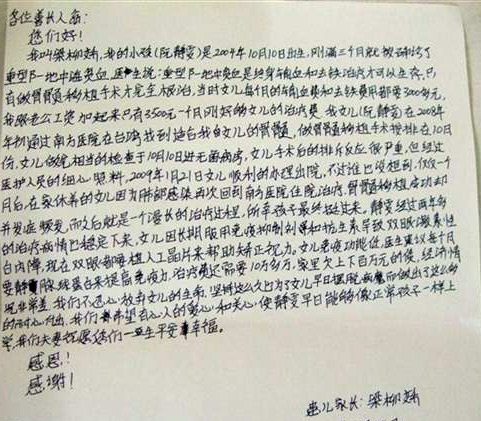 各位善长人翁:
您们好!
我叫梁柳燕,我的小孩(阮静雯)是2004年10月10日出生,刚满三个月就被确诊了
重型β-地中海贫血,医生说:重型β-地中海贫血是终身输血和去铁治疗才可以生存,只
有做骨髓移植手术才完全根治,当时女儿每个月的输血费和去铁费用都要3000多元,
我跟老公工资加起来只有3500元一个月刚好够女儿的治疗费。我女儿(阮静雯)在2008年
年初通过南方医院在台湾找到适合我的女儿的骨髓,做骨髓移植手术安排在10月
份,女儿做完相当的检查于10月10日进无菌病房,女儿手术后的排斥反应很严重,但经过
医护人员的细心照料,2009年1月21日女儿顺利的办理出院,不过谁也没想到,仅仅一个
月后,在家休养的女儿因为肺部感染再次回到南方医院住院治疗,骨髓移植成功却
并发症频发,而次后就是一个漫长的治疗过程,所幸孩子最终挺过来,静雯经过两年多
的治疗病情已稳定下来,女儿因长期服用免疫抑制剂药和抗生素导致双眼激素性
白内障,现在双眼都要植入人工晶片来帮助矫正视力。女儿免疫功能低,医生建议每个月
要静脉球蛋白来提高免疫力,治疗费还需要10万多元,家里欠上下百万元的债,经济情
况非常差,我们不忍心放弃女儿的生命,坚持这么久也为了女儿早日摆脱病魔而做出了这么多
的耐心付出,我们希望有心人的爱心和关心,使静雯早日能够像正常孩子一样上
学,我们夫妻祝愿您们一生平安幸福。
感恩!
感谢!
患儿家长:梁柳燕